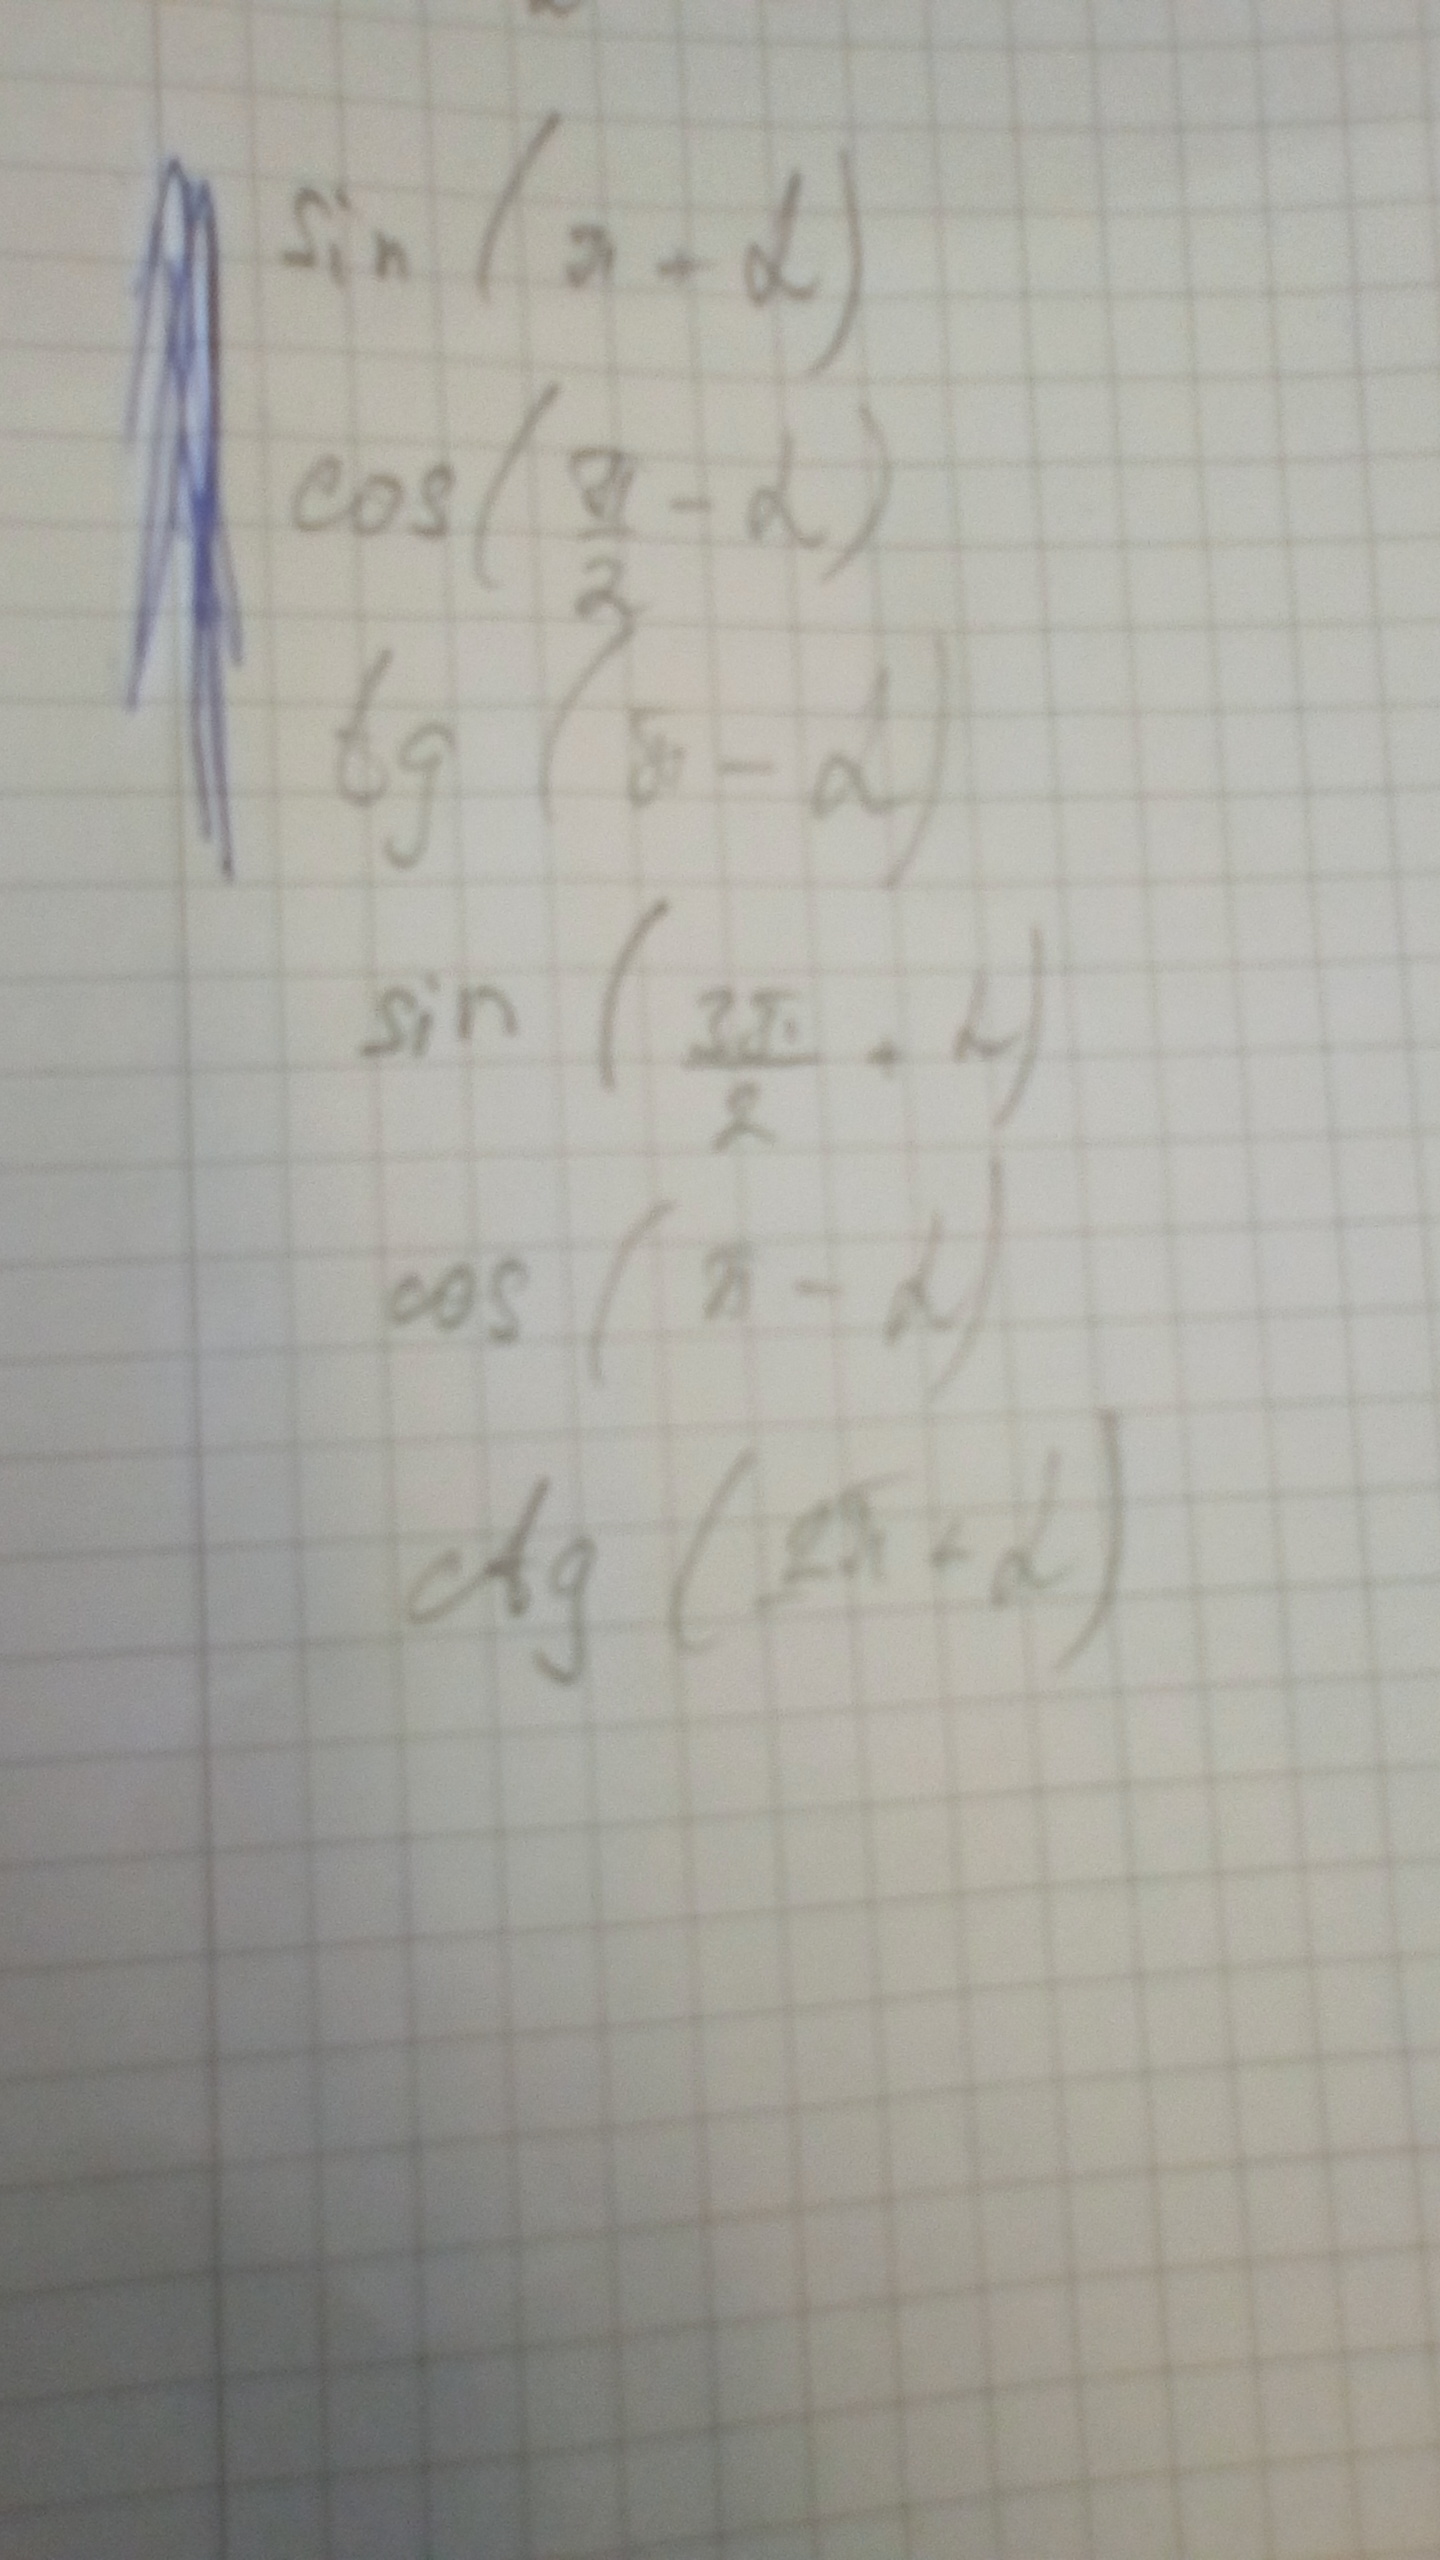 sin (π + α)
cos (π/2 - α)
tg (π - α)
sin (3π/2 + α)
cos (π - α)
ctg (2π + α)